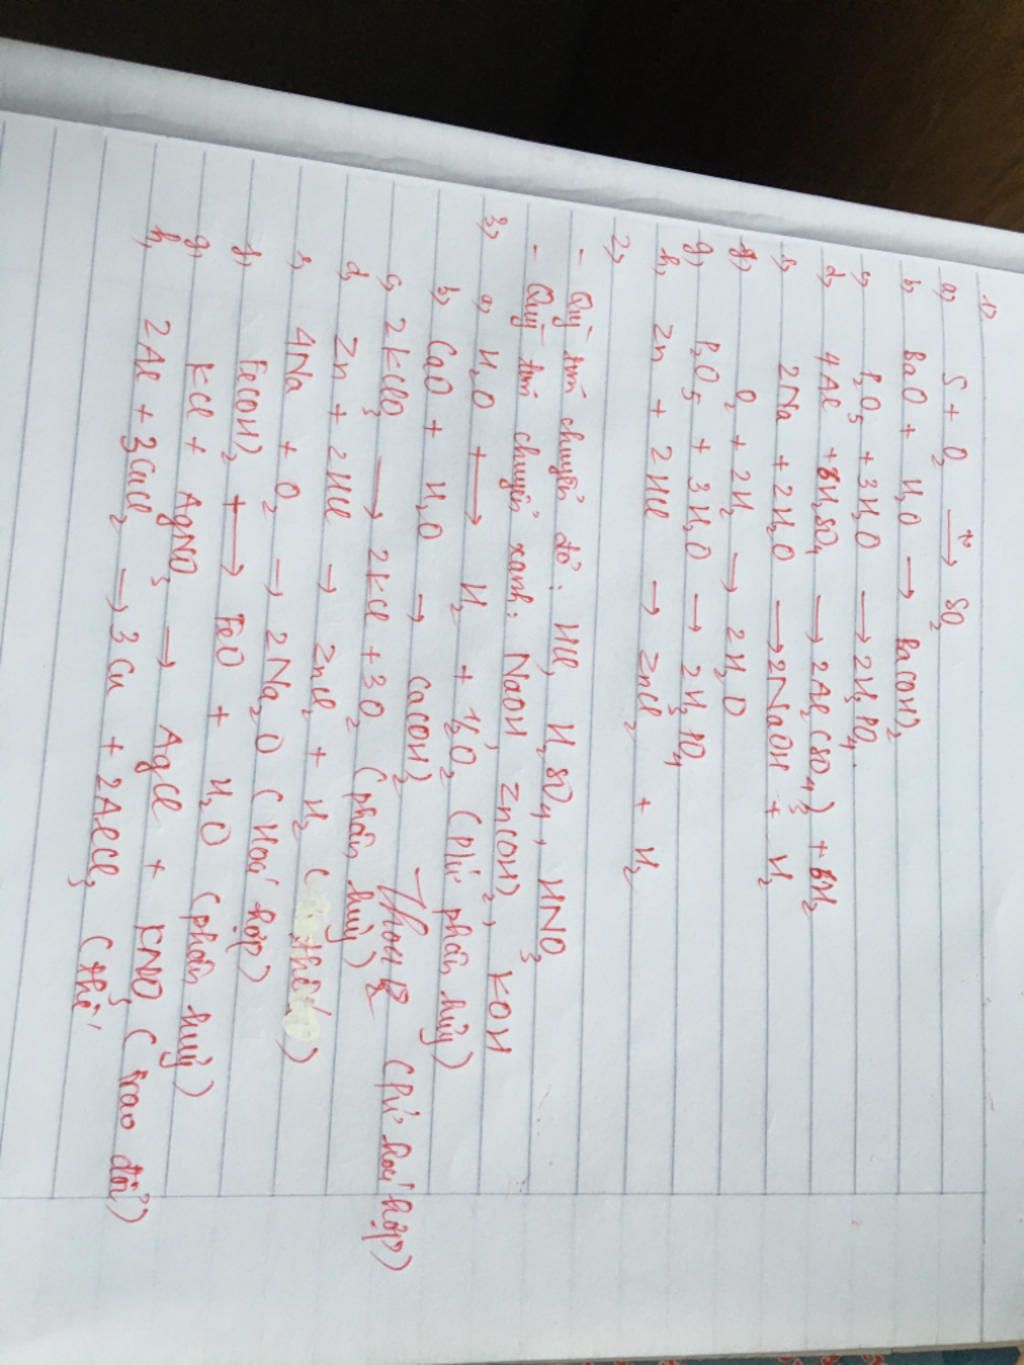 1,
a, S + O2 —t°→ SO2
b, BaO + H2O → Ba(OH)2
c, P2O5 + 3H2O → 2H3PO4.
d, 4Al + 6H2SO4 → 2Al2(SO4)3 + 6H2
2Na + 2H2O → 2NaOH + H2
O2 + 2H2 → 2H2O
g, P2O5 + 3H2O → 2H3PO4
h, Zn + 2HCl → ZnCl2 + H2
2,
- Quỳ tím chuyển đỏ: HCl, H2SO4, HNO3
- Quỳ tím chuyển xanh: NaOH, Zn(OH)2, KOH
3,
a, H2O → H2 + 1/2O2 (P/ứ phân hủy)
b, CaO + H2O → Ca(OH)2 (P/ứ hoá hợp)
c, 2KClO3 → 2KCl + 3O2 (phân huỷ)
d, Zn + 2HCl → ZnCl2 + H2 (thế)
4Na + O2 → 2Na2O (Hoá hợp)
f, Fe(OH)2 → FeO + H2O (phân huỷ)
g, KCl + AgNO3 → AgCl + KNO3 (trao đổi)
h, 2Al + 3CuCl2 → 3Cu + 2AlCl3 (thế